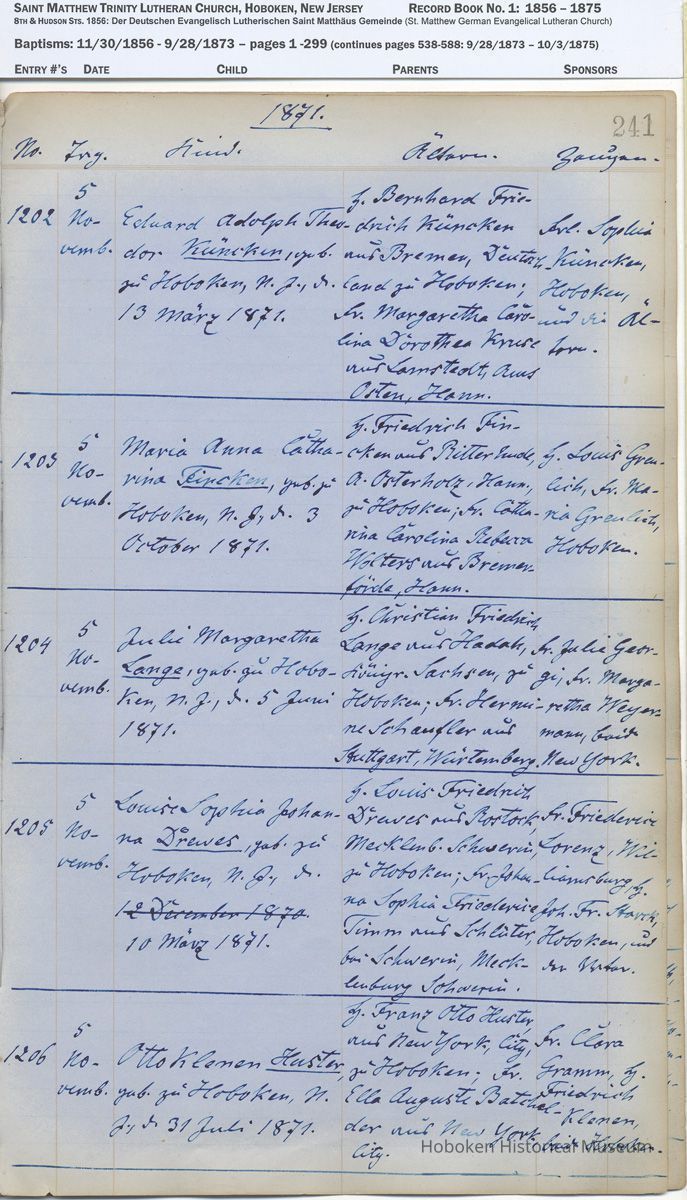 SAINT MATTHEW TRINITY LUTHERAN CHURCH, HOBOKEN, NEW JERSEY RECORD BOOK NO. 1: 1856 – 1875
8TH & HUDSON STS. 1856: Der Deutschen Evangelisch Lutherischen Saint Matthäus Gemeinde (St. Matthew German Evangelical Lutheran Church)
Baptisms: 11/30/1856 - 9/28/1873 – pages 1 -299 (continues pages 538-588: 9/28/1873 – 10/3/1875)
ENTRY #'S DATE CHILD PARENTS SPONSORS
1871.
241
No. Kind. Ältern. Zeugen.
1202
5
No-
vemb.
Eduard Adolph Theo-
dor Küncken, geb.
zu Hoboken, N. J., d.
13 März 1871.
H. Bernhard Frie-
drich Küncken
aus Bremen, Deutsch-
land zu Hoboken;
Fr. Margaretha Caro-
lina Dorothea Kruse
aus Lamstedt, Amt
Osten, Hann.
Frl. Sophia
Küncken,
Hoboken,
und die Äl-
tern.
1203
5
No-
vemb.
Maria Anna Catha-
rina Fincken, geb. zu
Hoboken, N. J., d. 3
October 1871.
H. Friedrich Fin-
cken aus Ritterhude,
A. Osterholz, Hann.,
zu Hoboken; Fr. Catha-
rina Carolina Rebecca
Wolters aus Bremer-
förde, Hann.
H. Louis Greu-
lich, Fr. Ma-
ria Greulich,
Hoboken.
1204
5
No-
vemb.
Julie Margaretha
Lange, geb. zu Hobo-
ken, N. J., d. 5 Juni
1871.
H. Christian Friedrich
Lange aus
Königr. Sachsen, zu
Hoboken; Fr. Hermi-
ne Schaufler aus
Stuttgart, Würtemberg.
Fr. Julie Geor-
gi, Fr. Marga-
retha Weyer-
mann, beide
New York.
1205
5
No-
vemb.
Louise Sophia Johan-
na Drewes, geb. zu
Hoboken, N. J., d.
12 December 1870.
10 März 1871.
H. Louis Friedrich
Drewes aus Rostock,
Mecklenb. Schwerin,
zu Hoboken; Fr. Johan-
na Sophia Friederice
Timm aus Schlüter,
bei Schwerin, Meck-
lenburg Schwerin.
Fr. Friederice
Lorenz, Wil-
liamsburg, H.
Joh. Fr. Starck,
Hoboken, und
der Vater.
1206
5
No-
vemb.
Otto Klenen Huster,
geb. zu Hoboken, N.
J., d. 31 Juli 1871.
H. Franz Otto Huster,
aus New York, City,
zu Hoboken; Fr.
Ella Auguste Batchel-
der aus New York
City.
Fr. Clara
Gramm, H.
Friedrich
Klenen,
Hoboken Historical Museum